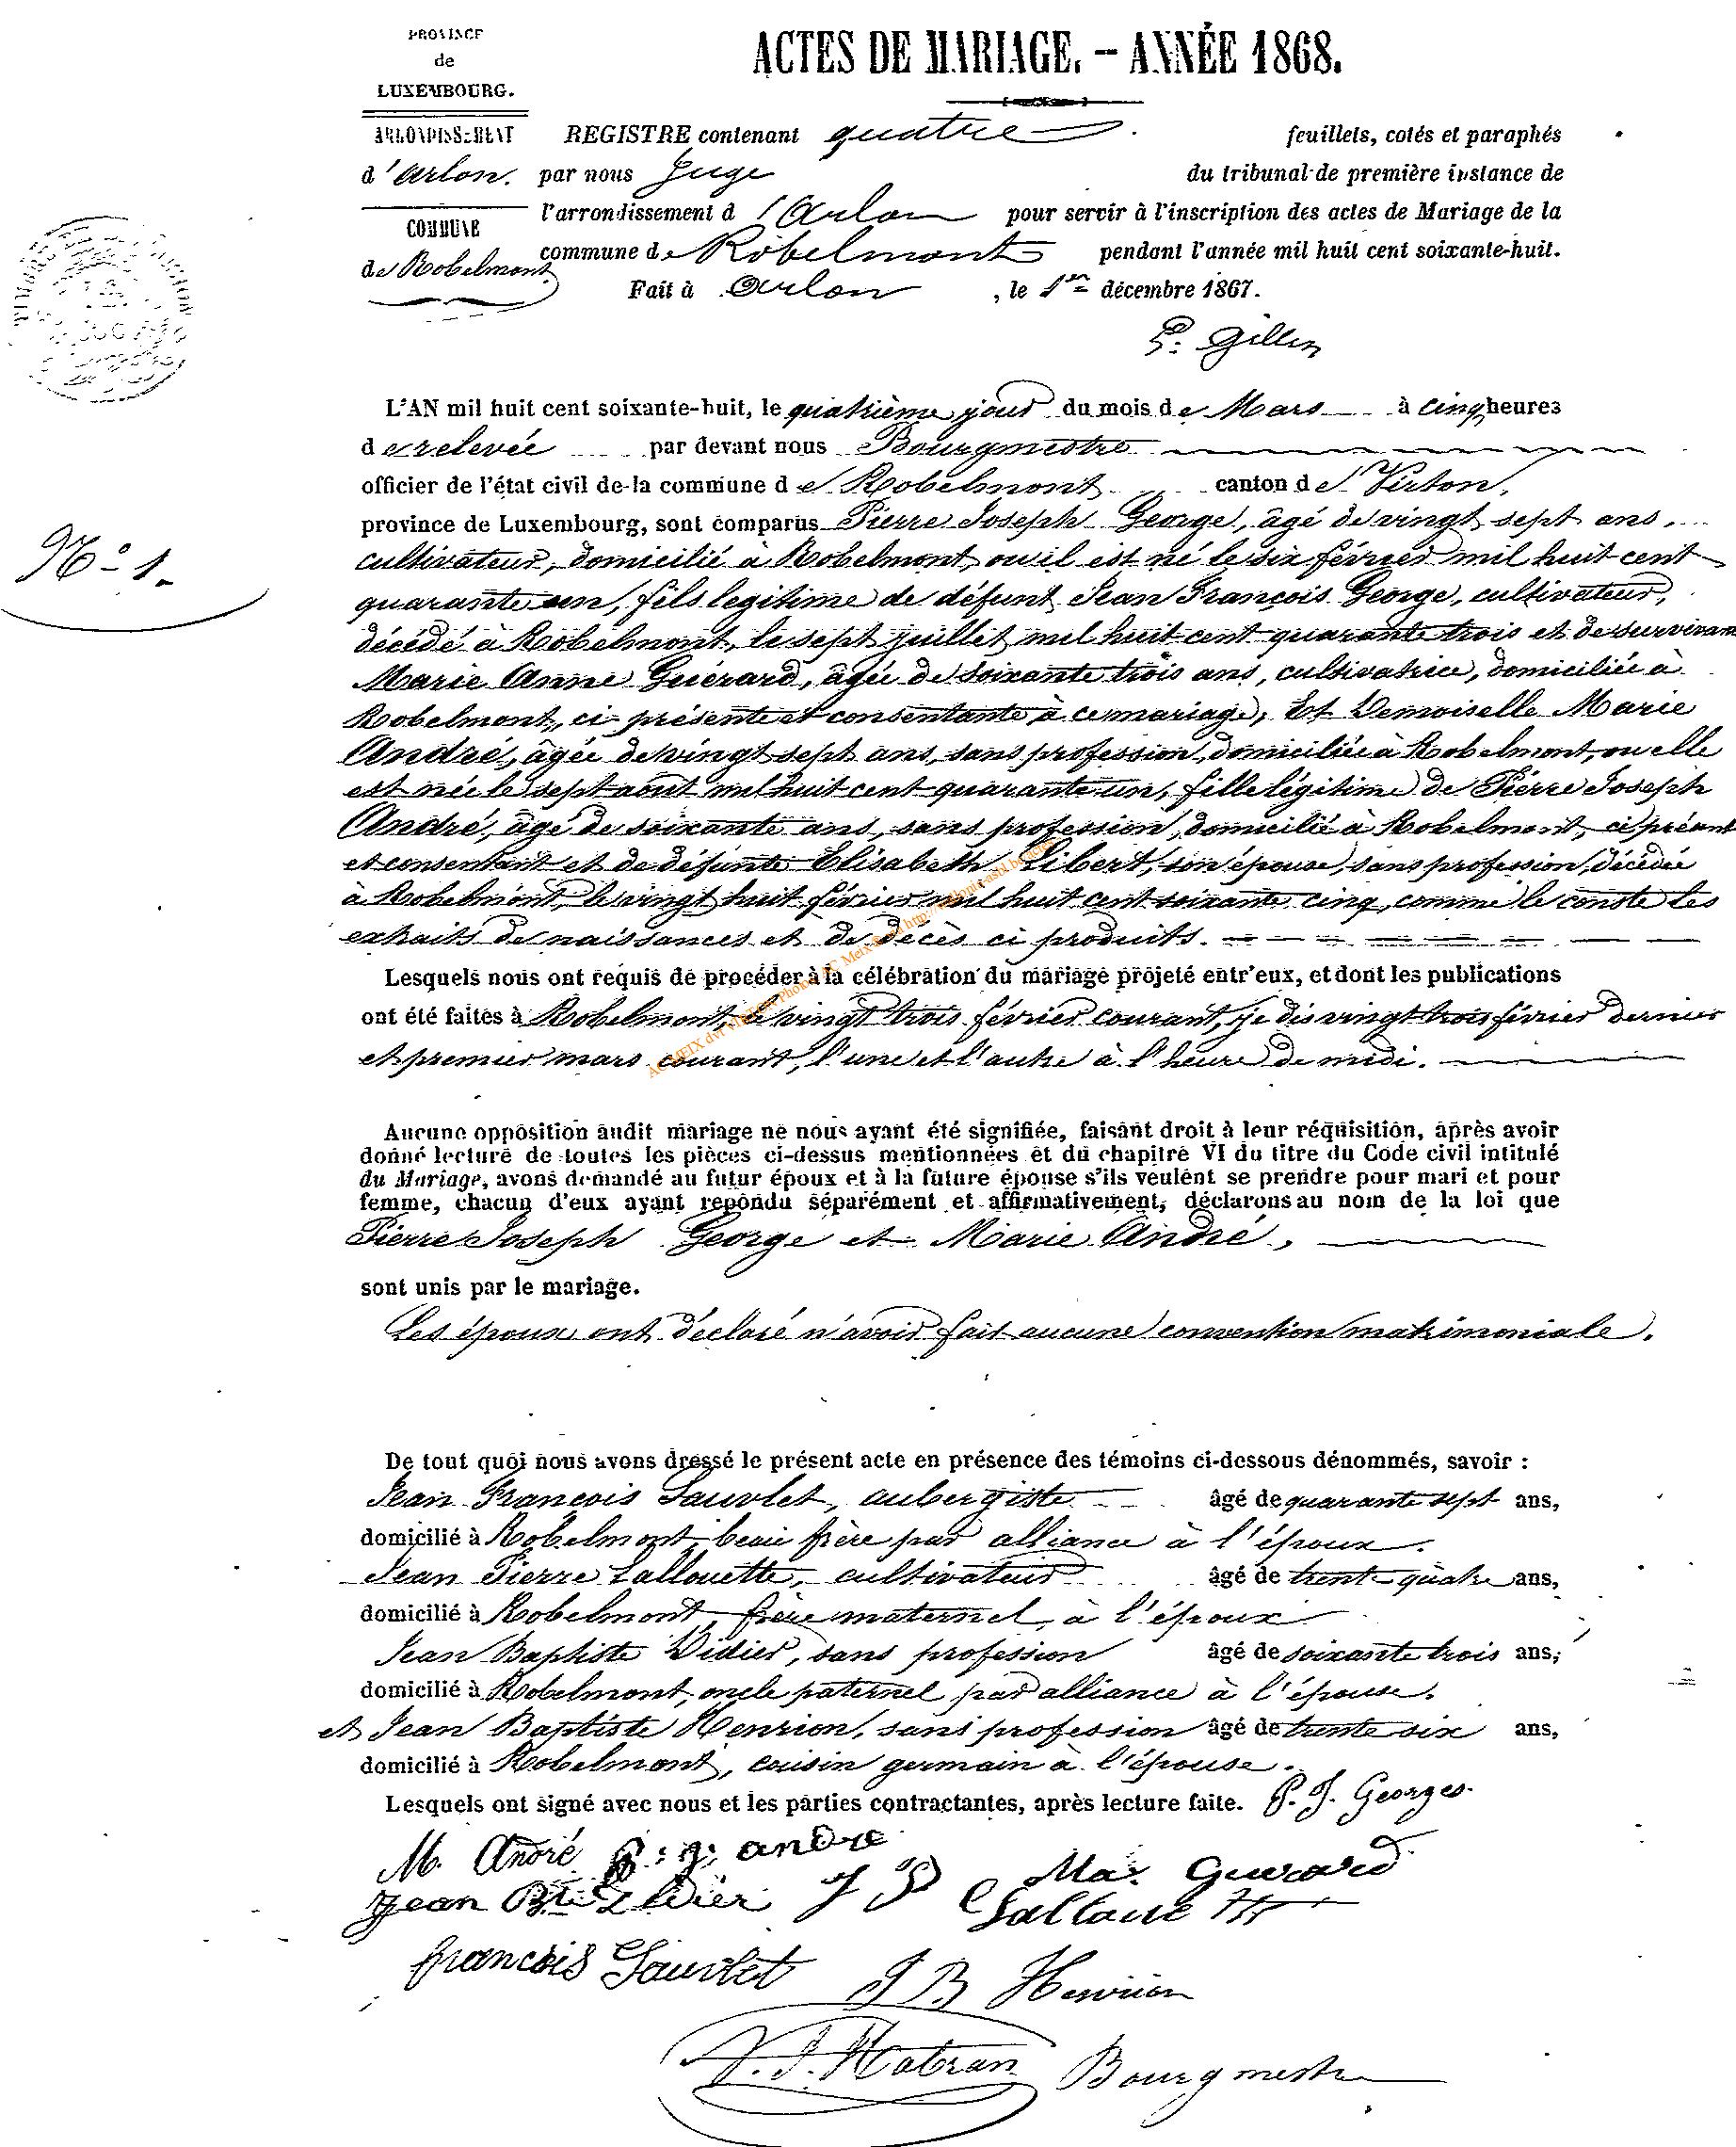 PROVINCE
de
LUXEMBOURG.
ARRONDISSEMENT
d'Arlon.
COMMUNE
de Robelmont
ACTES DE MARIAGE. - ANNÉE 1868.
REGISTRE contenant quatre feuillets, cotés et paraphés
par nous Juge du tribunal de première instance de
l'arrondissement d'Arlon pour servir à l'inscription des actes de Mariage de la
commune de Robelmont pendant l'année mil huit cent soixante-huit.
Fait à Arlon, le 1er décembre 1867.
P. Gillin
N° 1.
L'AN mil huit cent soixante-huit, le quatrième jour du mois de Mars à cinq heures
de relevée par devant nous Bourgmestre
officier de l'état civil de la commune de Robelmont canton de Virton,
province de Luxembourg, sont comparus Pierre Joseph George, âgé de vingt sept ans,
cultivateur, domicilié à Robelmont, ou il est né le six février mil huit cent
quarante un, fils legitime de défunt Jean François George, cultivateur,
décédé à Robelmont, le sept juillet mil huit cent quarante trois et de survivan
Marie Anne Guérard, âgée de soixante trois ans, cultivatrice, domiciliée à
Robelmont, ci présente et consentante à ce mariage, Et Demoiselle Marie
André, âgée de vingt sept ans, sans profession, domiciliée à Robelmont, ou elle
est née le sept août mil huit cent quarante un, fille légitime de Pierre Joseph
André, âgé de soixante ans, sans profession, domicilié à Robelmont, ci présent
et consentant et de défunte Elisabeth Libert, son épouse, sans profession, décédée
à Robelmont, le vingt huit février mil huit cent soixante cinq, comme le conste les
extraits de naissances et de décès ci produits.
Lesquels nous ont requis de procéder à la célébration du mariage projeté entr'eux, et dont les publications
ont été faites à Robelmont, le vingt trois février courant, je dis vingt trois février dernier
et premier mars courant, l'une et l'autre à l'heure de midi.
Aucune opposition audit mariage ne nous ayant été signifiée, faisant droit à leur réquisition, après avoir
donné lecture de toutes les pièces ci-dessus mentionnées et du chapitre VI du titre du Code civil intitulé
du Mariage, avons demandé au futur époux et à la future épouse s'ils veulent se prendre pour mari et pour
femme, chacun d'eux ayant repondu séparément et affirmativement, déclarons au nom de la loi que
Pierre Joseph George et Marie André,
sont unis par le mariage.
Les époux ont déclaré n'avoir fait aucune convention matrimoniale.
De tout quoi nous avons dressé le présent acte en présence des témoins ci-dessous dénommés, savoir :
Jean François Sauvlet, aubergiste âgé de quarante sept ans,
domicilié à Robelmont, beau frère par alliance à l'époux.
Jean Pierre Lallouette, cultivateur âgé de trente quatre ans,
domicilié à Robelmont, frère maternel, à l'époux
Jean Baptiste Didier, sans profession âgé de soixante trois ans,
domicilié à Robelmont, oncle paternel par alliance à l'épouse.
et Jean Baptiste Henrion, sans profession âgé de trente six ans,
domicilié à Robelmont, cousin germain à l'épouse.
Lesquels ont signé avec nous et les parties contractantes, après lecture faite. P. J. Georges
M. André P. J. andre
Ma. Guerard
Jean Bte Didier J P
françois Sauvlet J B Henrion
Bourgmestre